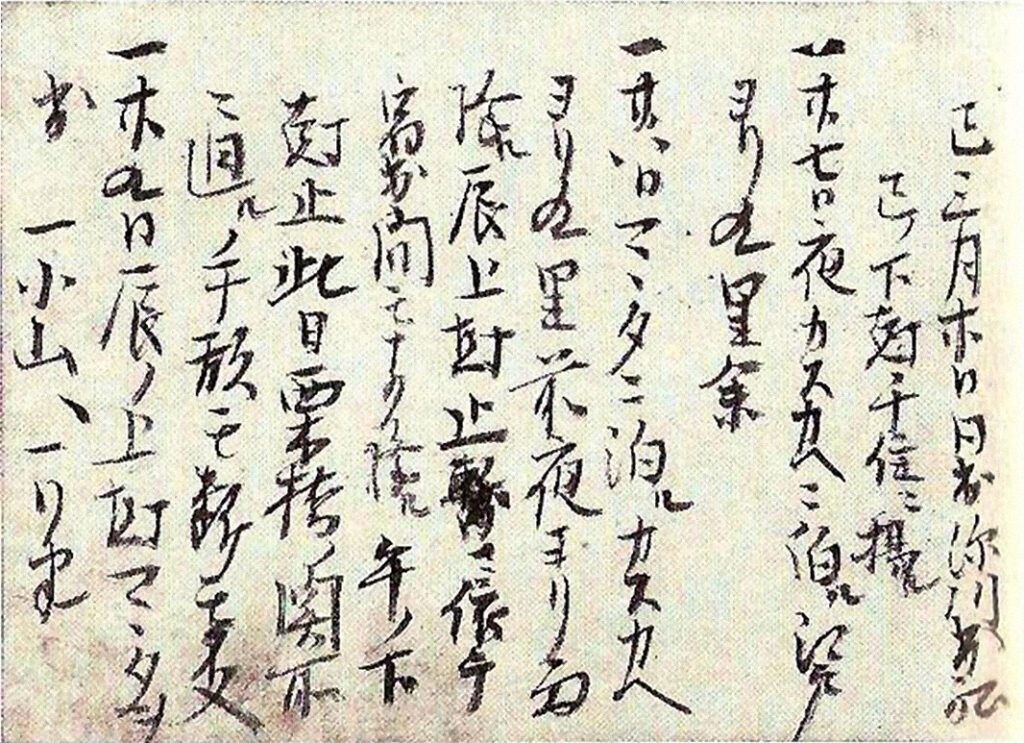 巳三月廿日日出深川出船
巳ノ下尅千住ニ揚ル
一廿七日夜カスカヘニ泊ル江戸
ヨリ九里余
一廿八日マヽタニ泊ルカスカヘ
ヨリ九里前夜ヨリ雨
降ル辰上尅止ニ依テ
宿出間モナク降ル午ノ下
尅止此日栗橋ノ関所
通ル手形モ断モ不入
一廿九日辰ノ上尅マヽタヲ
出 一小山ヘ一リ半